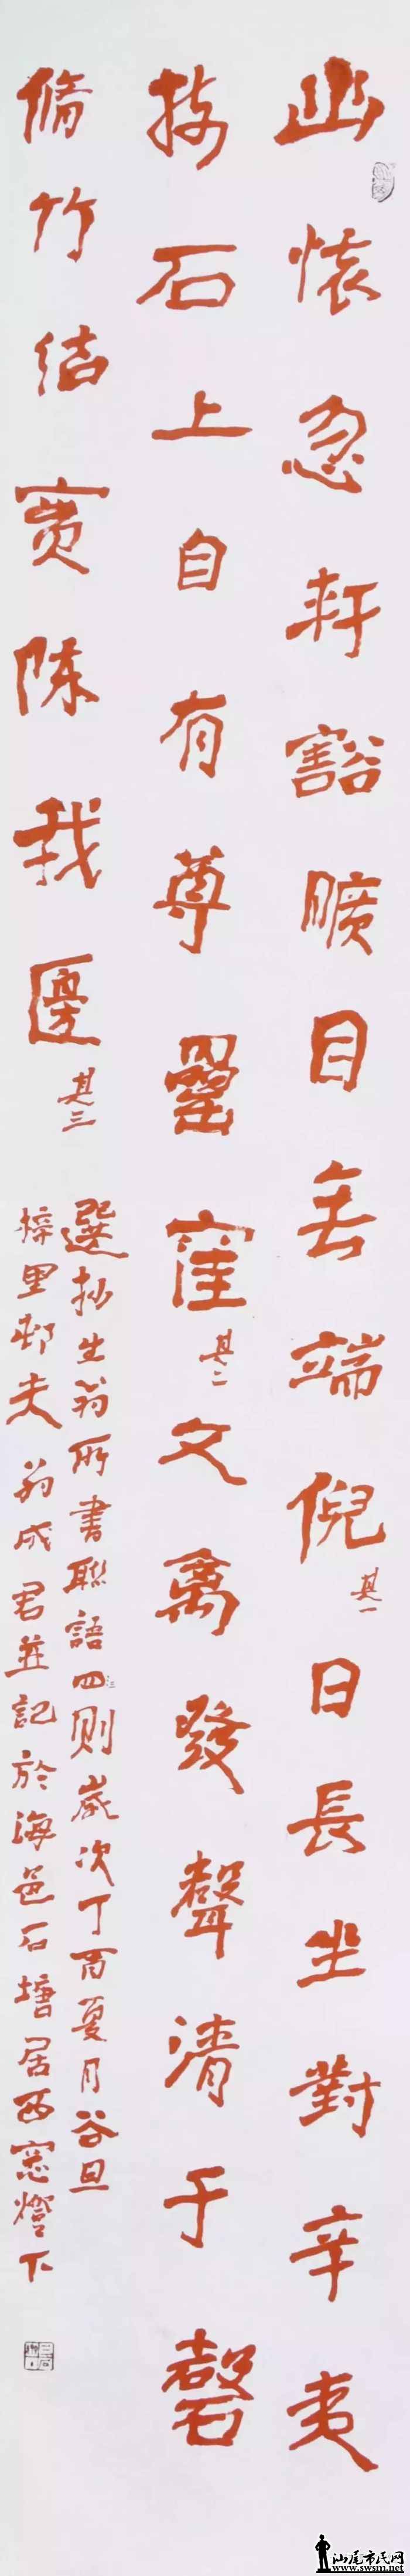 幽懷忽軒豁曠目无端倪 其一 日長坐對辛夷
枝石上自有尊罍窪 其二 文禽發聲清于磬
脩竹結實陳我邊 其三
選抄生翁所書聯語四則歲次丁酉夏月谷旦
梓里邨夫翁成君並記於海邑石塘居西窓燈下
汕尾市民网
www.swsm.net